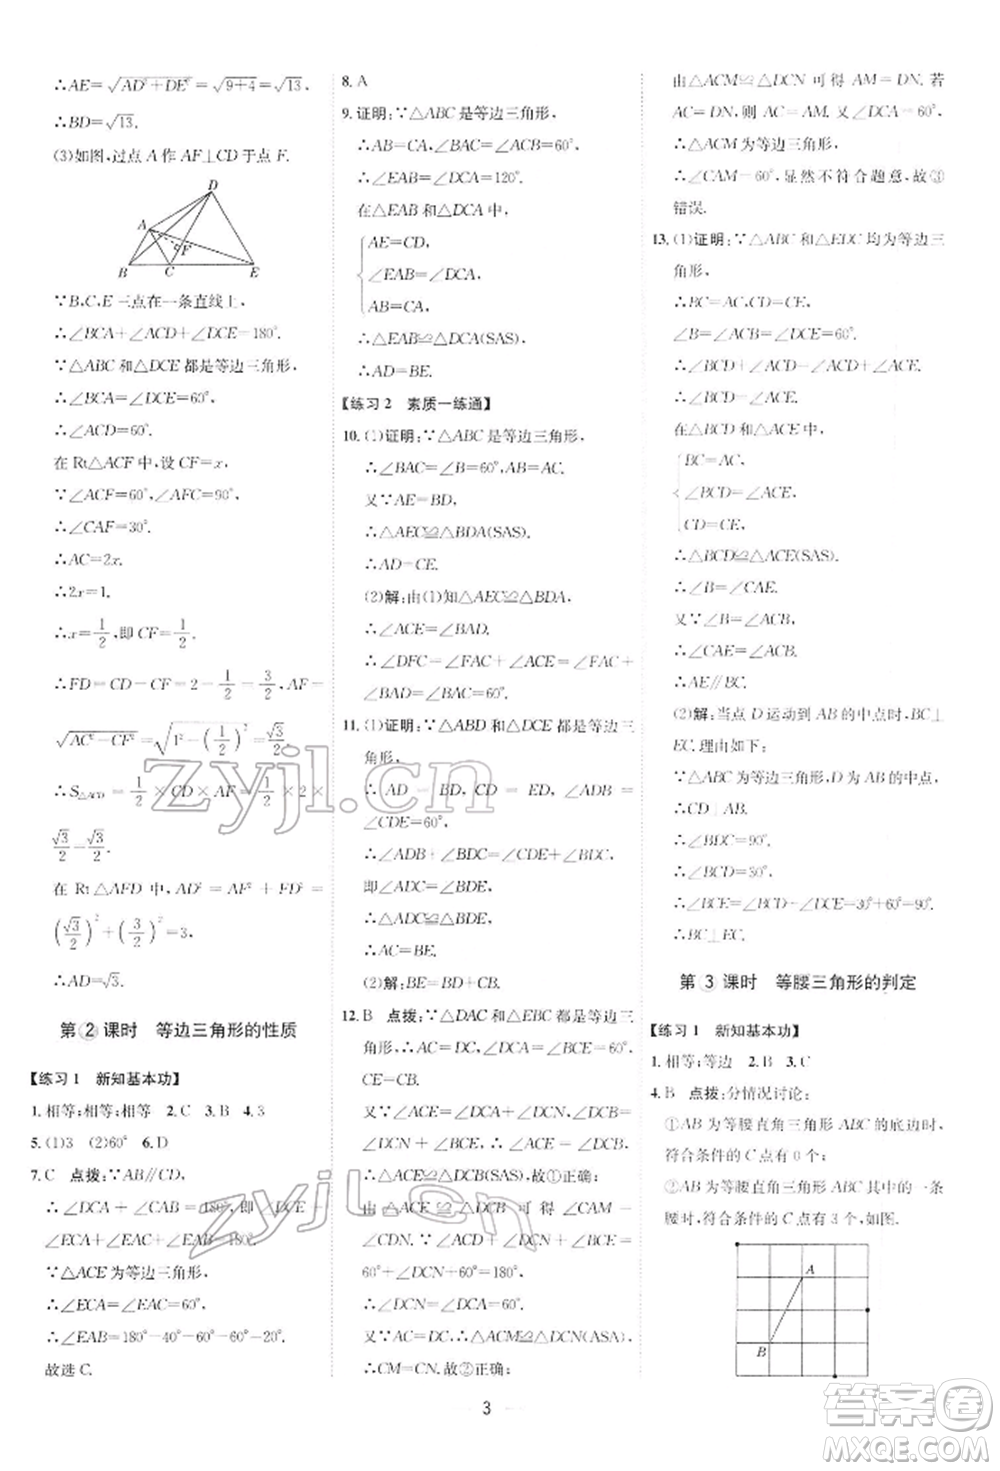 ∴AE=√(AD²+DE²)=√(9+4)=√13.
∴BD=√13.
(3)如图,过点 A 作 AF⊥CD 于点 F.
D
A
F
B
C
E
∵B,C,E 三点在一条直线上,
∴∠BCA+∠ACD+∠DCE=180°.
∵△ABC 和△DCE 都是等边三角形,
∴∠BCA=∠DCE=60°,
∴∠ACD=60°.
在 Rt△ACF 中,设 CF=x,
∵∠ACF=60°,∠AFC=90°,
∴∠CAF=30°.
∴AC=2x.
∴2x=1.
∴x=1/2,即 CF=1/2.
∴FD=CD-CF=2-1/2=3/2,AF=
√(AC²-CF²)=√(1²-(1/2)²)=√3/2.
∴S△ACD=1/2×CD×AF=1/2×2×
√3/2=√3/2.
在 Rt△AFD 中,AD²=AF²+FD²=
(√3/2)²+(3/2)²=3,
∴AD=√3.
第②课时 等边三角形的性质
【练习1 新知基本功】
1.相等;相等;相等 2.C 3.B 4.3
5.(1)3 (2)60° 6.D
7.C 点拨:∵AB∥CD,
∴∠DCA+∠CAB=180°,即∠DCE
+∠ECA+∠EAC+∠EAB=180°.
∵△ACE 为等边三角形,
∴∠ECA=∠EAC=60°,
∴∠EAB=180°-40°-60°-60°=20°.
故选C.
8.A
9.证明:∵△ABC 是等边三角形,
∴AB=CA,∠BAC=∠ACB=60°,
∴∠EAB=∠DCA=120°.
在△EAB 和△DCA 中,
AE=CD,
∠EAB=∠DCA,
AB=CA,
∴△EAB≌△DCA(SAS)
∴AD=BE.
【练习2 素质一练通】
10.(1)证明:∵△ABC 是等边三角形,
∴∠BAC=∠B=60°,AB=AC.
又∵AE=BD,
∴△AEC≌△BDA(SAS)
∴AD=CE.
(2)解:由(1)知△AEC≌△BDA,
∴∠ACE=∠BAD.
∴∠DFC=∠FAC+∠ACE=∠FAC+
∠BAD=∠BAC=60°.
11.(1)证明:∵△ABD 和△DCE 都是等边三
角形,
∴AD=BD,CD=ED,∠ADB=
∠CDE=60°.
∴∠ADB+∠BDC=∠CDE+∠BDC,
即∠ADC=∠BDE.
∴△ADC≌△BDE.
∴AC=BE.
(2)解:BE=BD+CB.
12.B 点拨:∵△DAC 和△EBC 都是等边三
角形,∴AC=CD,CE=BC,∠ACD=
∠ECB=60°.
又∵∠ACE=∠ACD+∠DCE,
∠DCB=∠ECB+∠DCE,
∴∠ACE=∠DCB,
∴△ACE≌△DCB(SAS),故①正确;
由△ACE≌△DCB 可得∠CAM=
∠CDN. 又∵∠ACD=∠BCE=
60°+∠DCN+∠DCN=180°,
∴∠DCN=∠DCA=60°,
∴△ACM≌△DCN(ASA),
∴CM=CN. 故②正确;
由△ACM≌△DCN 可得 AM=DN. 若
AC=DN, 则 AC=AM. ∠DCA=60°,
∴△ACM 为等边三角形,
∴∠CAM=60°,显然不符合题意,故③
错误.
13.(1)证明:∵△ABC 和△EDC 均为等边三
角形,
∴BC=AC,CD=CE,
∠B=∠ACB=∠DCE=60°.
∴∠BCD+∠ACD=∠ACD+∠ACE.
∴∠BCD=∠ACE.
在△BCD 和△ACE 中,
BC=AC,
∠BCD=∠ACE,
CD=CE,
∴△BCD≌△ACE(SAS).
∴∠B=∠CAE.
又∵∠B=∠ACB.
∴∠CAE=∠ACB.
∴AE∥BC.
(2)解:当点 D 运动到 AB 的中点时,BC⊥
EC.理由如下:
∵△ABC 为等边三角形,D 为 AB 的中点,
∴CD⊥AB.
∴∠BDC=90°.
∴∠BCD=30°.
∴∠BCE=∠BCD+∠DCE=30°+60°=90°.
∴BC⊥EC.
第③课时 等腰三角形的判定
【练习1 新知基本功】
1.相等;等边 2.B 3.C
4.B 点拨:分情况讨论:
①AB 为等腰直角三角形 ABC 的底边时,
符合条件的 C 点有 0 个;
②AB 为等腰直角三角形 ABC 其中的一条
腰时,符合条件的 C 点有 3 个,如图.
A
B
3
zyjl.cn
zyjl.cn
答案圈
MXQE.COM